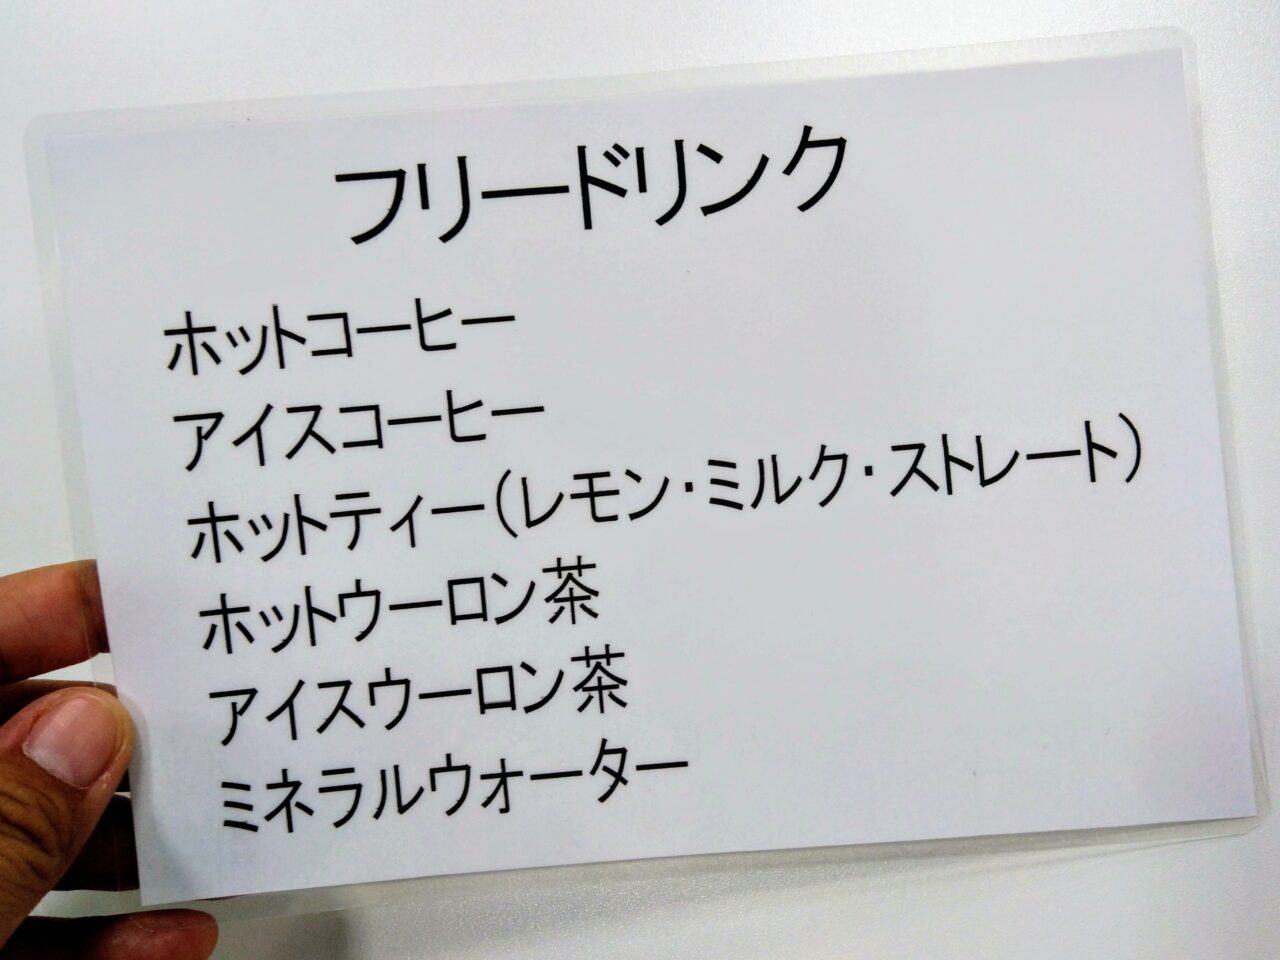 フリードリンク
ホットコーヒー
アイスコーヒー
ホットティー(レモン・ミルク・ストレート)
ホットウーロン茶
アイスウーロン茶
ミネラルウォーター